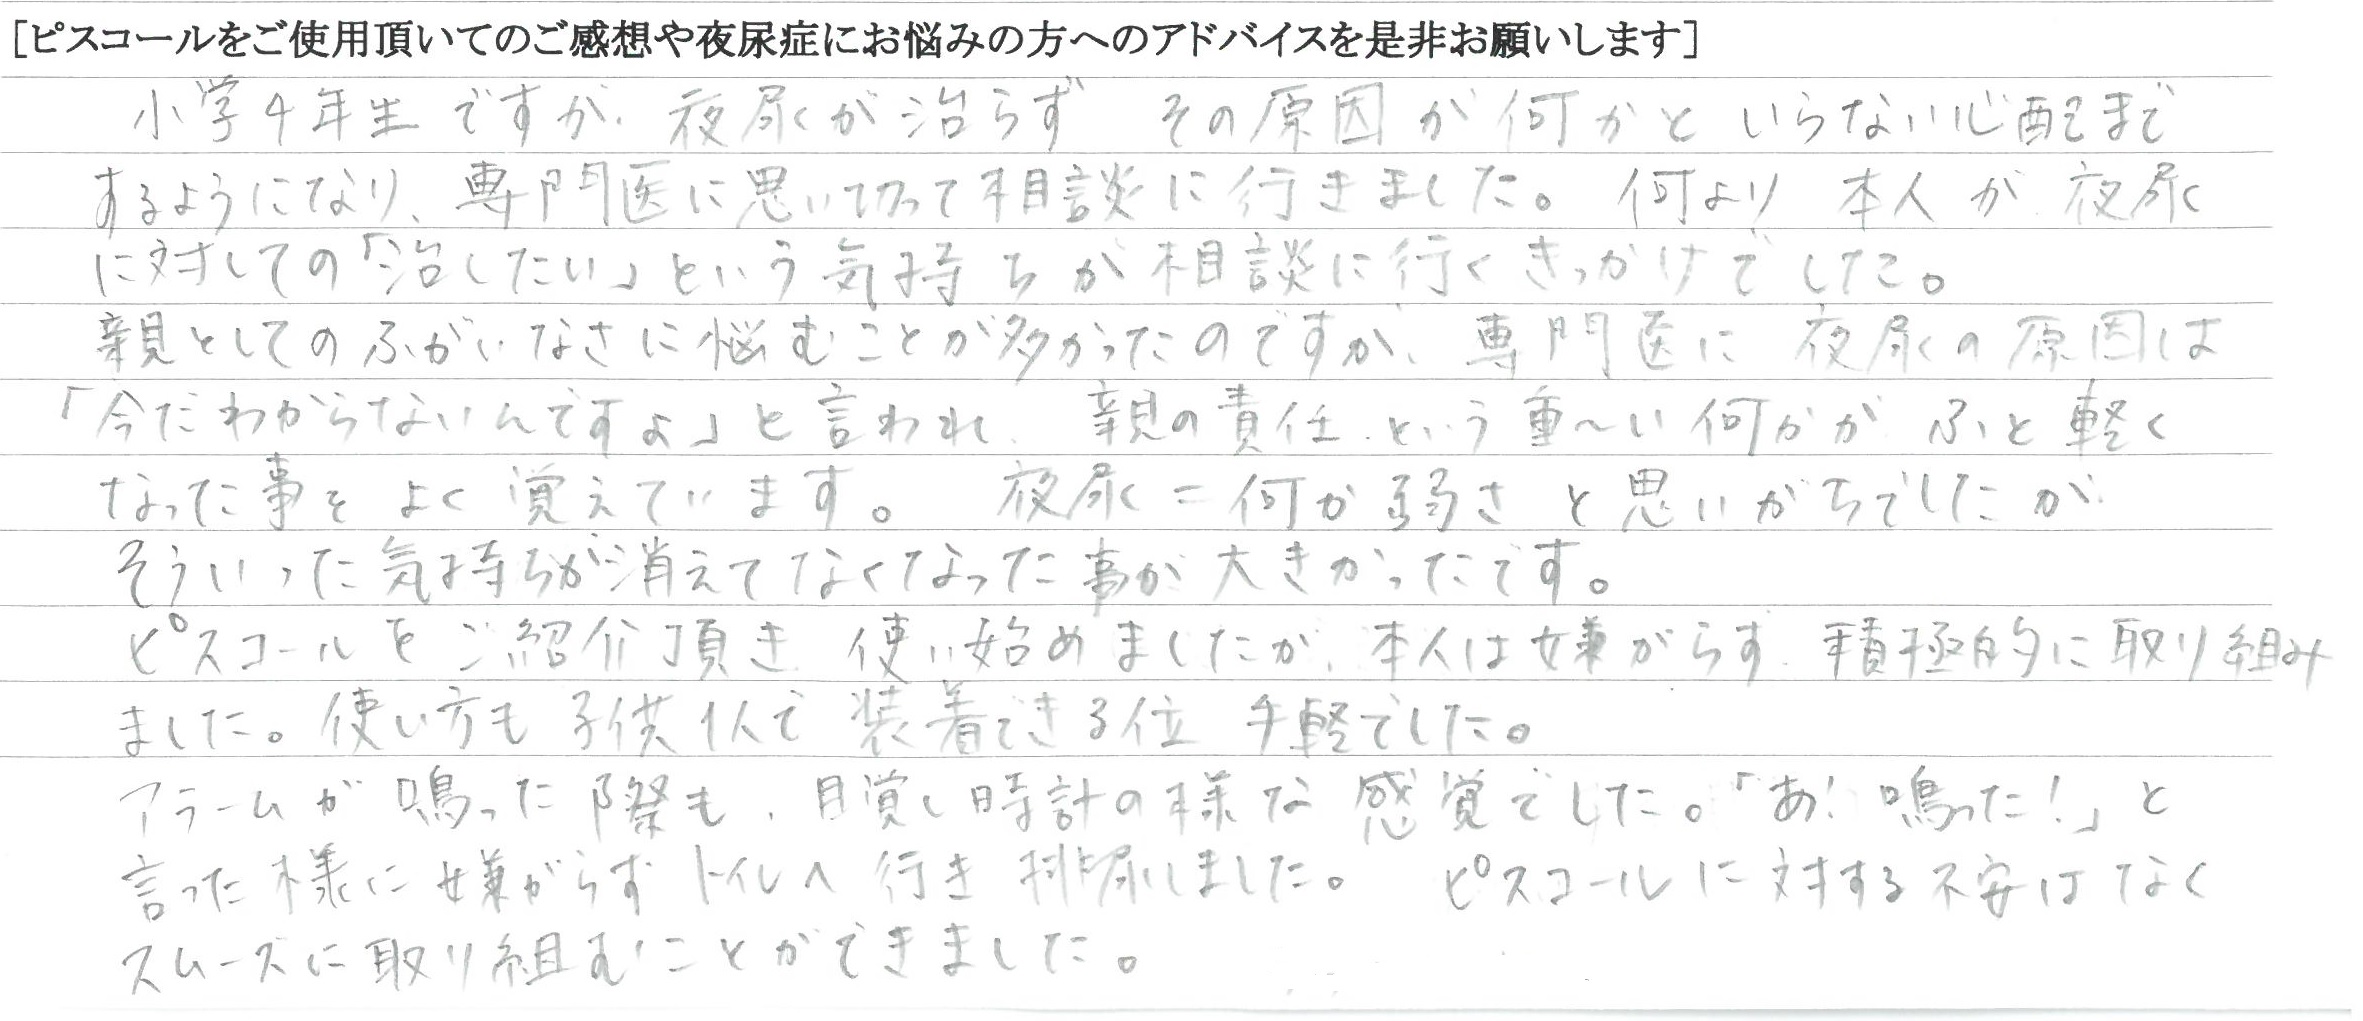 [ピスコールをご使用頂いてのご感想や夜尿症にお悩みの方へのアドバイスを是非お願いします]
小学4年生ですが、夜尿が治らず その原因が何かと いらない心配まで
するようになり、専門医に思い切って相談に行きました。何より 本人が 夜尿
に対しての「治したい」という気持ちが相談に行くきっかけでした。
親としてのふがいなさに悩むことが多かったのですが、専門医に 夜尿の原因は
「今だわからないんですよ」と言われ、親の責任、という重〜い何かが ふっと軽く
なった事をよく覚えています。 夜尿=何か弱さと思いがちでしたが
そういった気持ちが消えてなくなった事が大きかったです。
ピスコールをご紹介頂き 使い始めましたが、本人は嫌がらず、積極的に取り組み
ました。使い方も 子供1人で 装着できる位 手軽でした。
アラームが鳴った際も、目覚し時計の様な 感覚でした。「あ!鳴った!」と
言った様に嫌がらず トイレへ 行き 排尿しました。 ピスコールに対する不安はなく
スムーズに取り組むことができました。